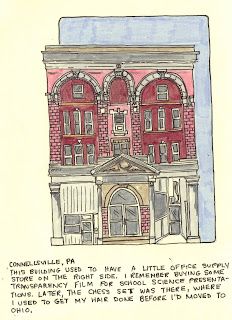 CONNELLSVILLE, PA
THIS BUILDING USED TO HAVE A LITTLE OFFICE SUPPLY
STORE ON THE RIGHT SIDE. I REMEMBER BUYING SOME
TRANSPARENCY FILM FOR SCHOOL SCIENCE PRESENTA-
TIONS. LATER, THE CHESS SET WAS THERE, WHERE
I USED TO GET MY HAIR DONE BEFORE I'D MOVED TO
OHIO.